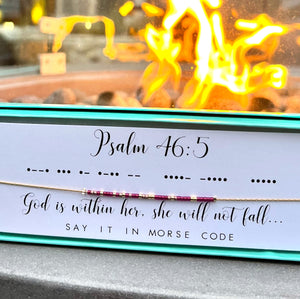 Psalm 46:5
•——• ••• •— •—•• —— ••••— —•••• •••••
God is within her, she will not fall...
SAY IT IN MORSE CODE